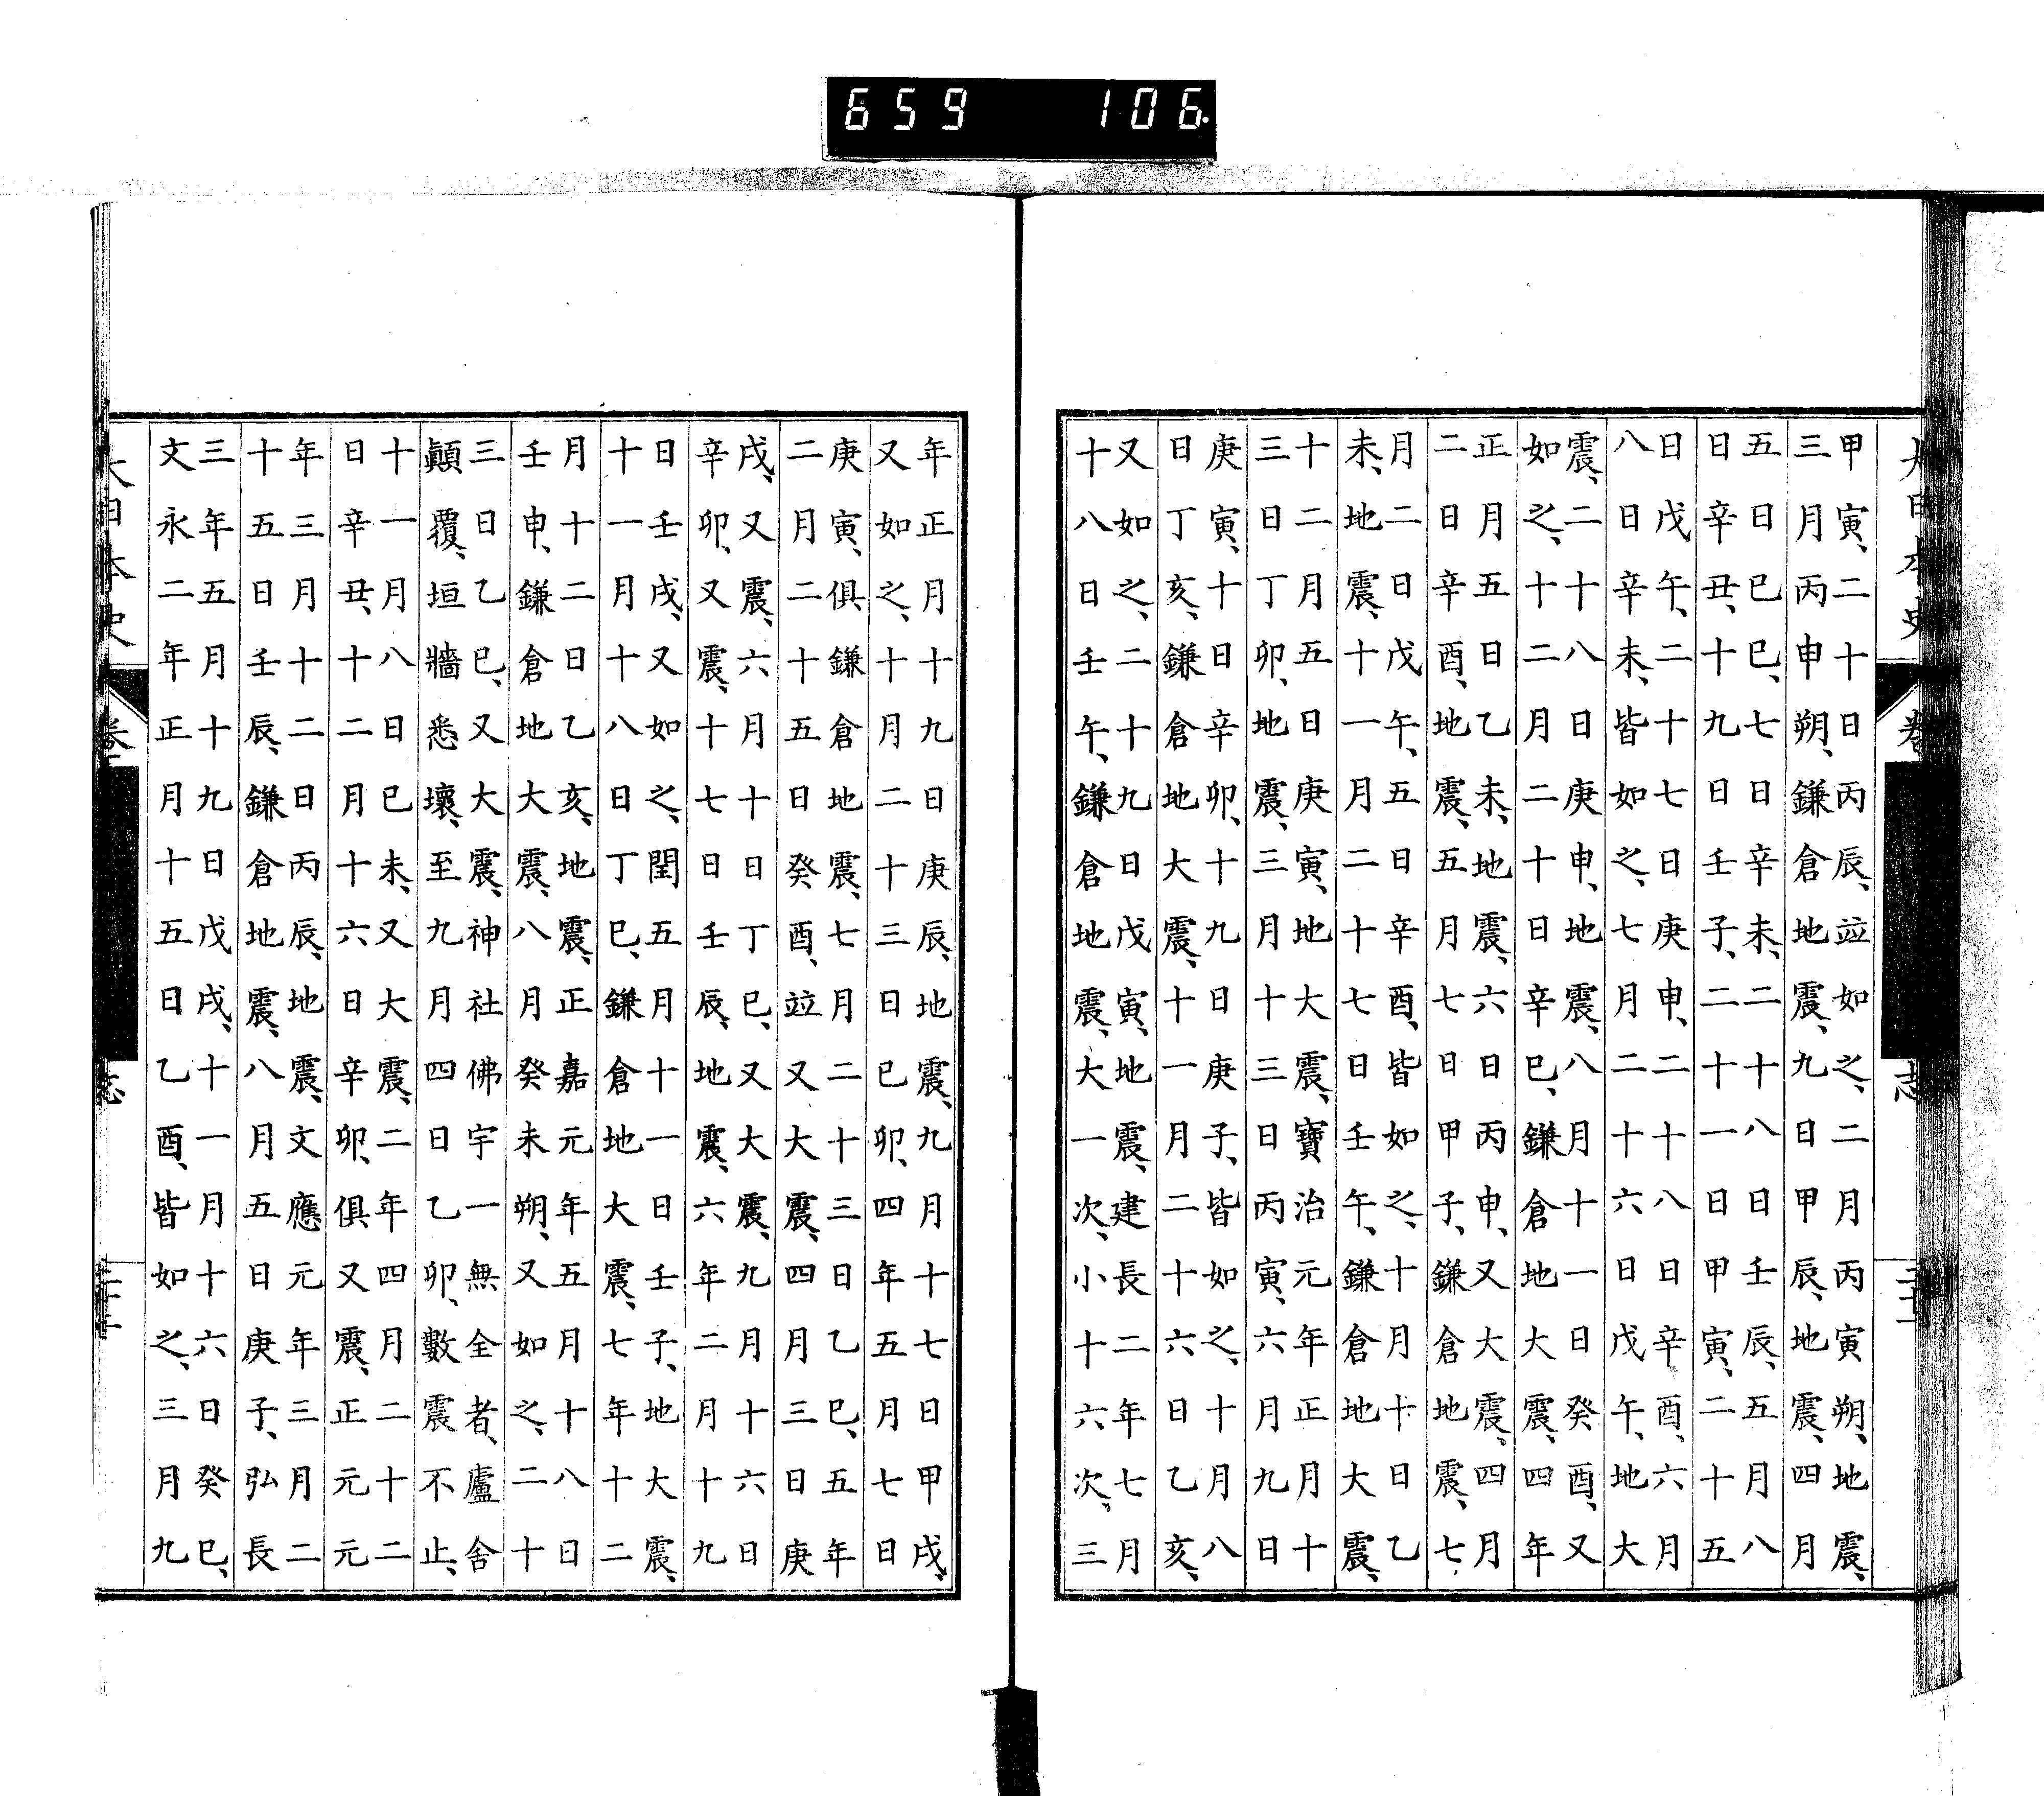 659 106
大日本史
志
甲寅、二十日丙辰、竝如之、二月丙寅朔、地震、
三月丙申朔、鎌倉地震、九日甲辰、地震、四月
五日己巳、七日辛未、二十八日壬辰、五月八
日辛丑、十九日壬子、二十一日甲寅、二十五
日戊午、二十七日庚申、二十八日辛酉、六月
八日辛未、皆如之、七月二十六日戊午、地大
震、二十八日庚申、地震、八月十一日癸酉、又
如之、十二月二十日辛巳、鎌倉地大震、四年
正月五日乙未、地震、六日丙申、又大震、四月
二日辛酉、地震、五月七日甲子、鎌倉地震、七
月二日戊午、五日辛酉、皆如之、十月十日乙
未、地震、十一月二十七日壬午、鎌倉地大震、
十二月五日庚寅、地大震、寶治元年正月十
三日丁卯、地震、三月十三日丙寅、六月九日
庚寅、十日辛卯、十九日庚子、皆如之、十月八
日丁亥、鎌倉地大震、十一月二十六日乙亥、
又如之、二十九日戊寅、地震、建長二年七月
十八日壬午、鎌倉地震、大一次、小十六次、三
年正月十九日庚辰、地震、九月十七日甲戌、
又如之、十月二十三日己卯、四年五月七日
庚寅、俱鎌倉地震、七月二十三日乙巳、五年
二月二十五日癸酉、竝又大震、四月三日庚
戌、又震、六月十日丁巳、又大震、九月十六日
辛卯、又震、十七日壬辰、地震、六年二月十九
日壬戌、又如之、閏五月十一日壬子、地大震、
十一月十八日丁巳、鎌倉地大震、七年十二
月十二日乙亥、地震、正嘉元年五月十八日
壬申、鎌倉地大震、八月癸未朔、又如之、二十
三日乙巳、又大震、神社佛宇一無全者、廬舍
顚覆、垣牆悉壞、至九月四日乙卯、數震不止、
十一月八日己未、又大震、二年四月二十二
日辛丑、十二月十六日辛卯、俱又震、正元元
年三月十二日丙辰、地震、文應元年三月二
十五日壬辰、鎌倉地震、八月五日庚子、弘長
三年五月十九日戊戌、十一月十六日癸巳、
文永二年正月十五日乙酉、皆如之、三月九
大日本史